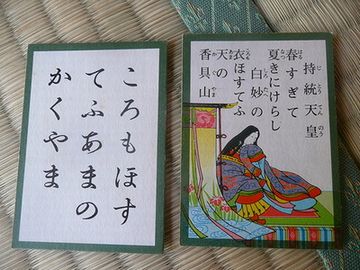 持統天皇
春すぎて
夏きにけらし
白妙の
衣ほすてふ
天の
香具山
ころもほす
てふあまの
かくやま